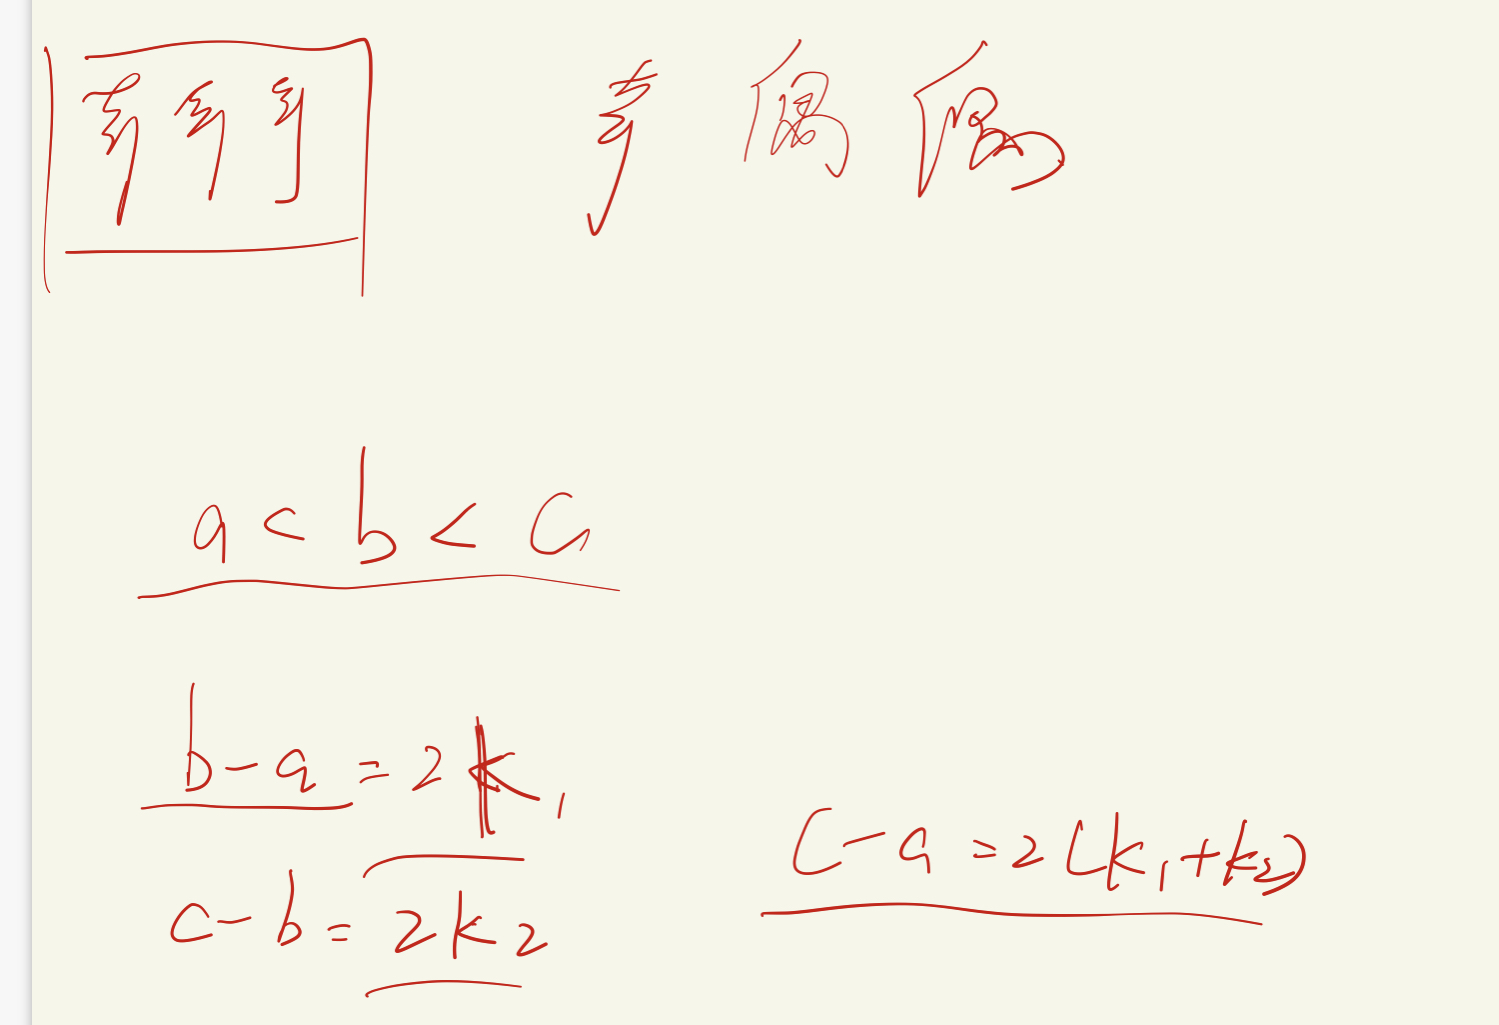 奇奇奇 奇偶偶
a < b < c
b - a = 2k₁
c - b = 2k₂
c - a = 2(k₁+k₂)